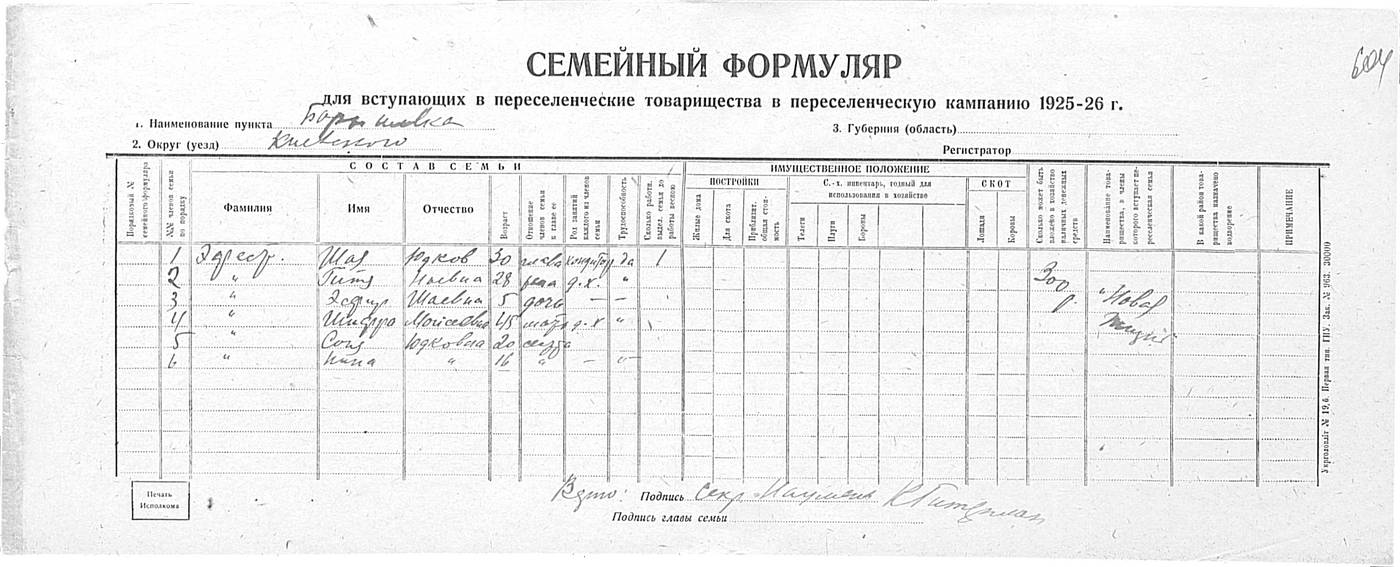 604
СЕМЕЙНЫЙ ФОРМУЛЯР
для вступающих в переселенческие товарищества в переселенческую кампанию 1925-26 г.
1. Наименование пункта Барышевка
3. Губерния (область)
2. Округ (уезд) Киевского
Регистратор
СОСТАВ СЕМЬИ
ИМУЩЕСТВЕННОЕ ПОЛОЖЕНИЕ
Порядковый № семейного формуляра
№№ членов семьи по порядку
Фамилия
Имя
Отчество
Возраст
Отношение членов семьи к главе ее
Род занятий каждого из членов семьи
Трудоспособность
Сколько работн. выдел. семья до работы весною
ПОСТРОЙКИ
Жилые дома
Для скота
Приблизит. общая стоимость
С.-х. инвентарь, годный для использования в хозяйстве
Телеги
Плуги
Бороны
СКОТ
Лошади
Коровы
Сколько может быть вложено в хозяйство наличных денежных средств
Наименование товарищества, в члены которого вступает переселенческая семья
В какой район товарищества назначено водворение
ПРИМЕЧАНИЕ
1 Шая Юдков 30 глава кондитер да 1
2 " Гитя 28 жена д.х. " 300 р.
3 " Эсфирь Шаевна 5 дочь — — "Новая
4 " Шифра Моисеевна 45 мать д.х "
5 " Соня Юдковна 20 сестра
6 " " 16 " — "
Печать Исполкома
Подпись секр.
Подпись главы семьи
Первая тип. ГПУ. Зак. № 963. 30000